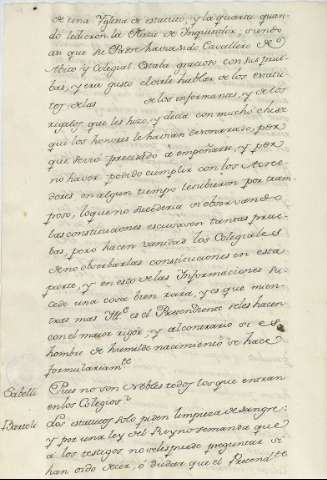 de una Yglesia de estatuto, y la quarta quan-
do le dieron la Plaza de Inquisidor, siendo
an que su Padre havia sido Cavallero de
Avito y Colegial. Estaba gracioso con sus prue-
bas, y era gusto oirle hablar de los
de las de los informantes, y de los
regalos que les hizo, y decia con mucho chiste
que los honores le havian deshonrado, por
que se vió precisado à empeñarse, y por
no haver podido cumplir con los Acree-
dores en algun tiempo le tubieron por tram-
poso, lo que no sucederia si observando
las constituciones escusasen tantas prue-
bas, pero hacen vanidad los Colegiales
de no observar las constituciones en esta
parte, y en esto de las Informaciones su-
cede una cosa bien rara, y es que mien-
tras mas Ill.e es el Pretendiente se les hacen
con el maior rigor, y al contrario si es
hombre de humilde nacimiento se hace
formulariam.te
Pues no son Nobles todos los que entran
en los Colegios?
Bartoli Los estatutos solo piden limpieza de sangre;
y por una ley del Reyno se manda que
a los testigos no se les puede preguntar si
han oido decir, ó dudar que el Pretend.te